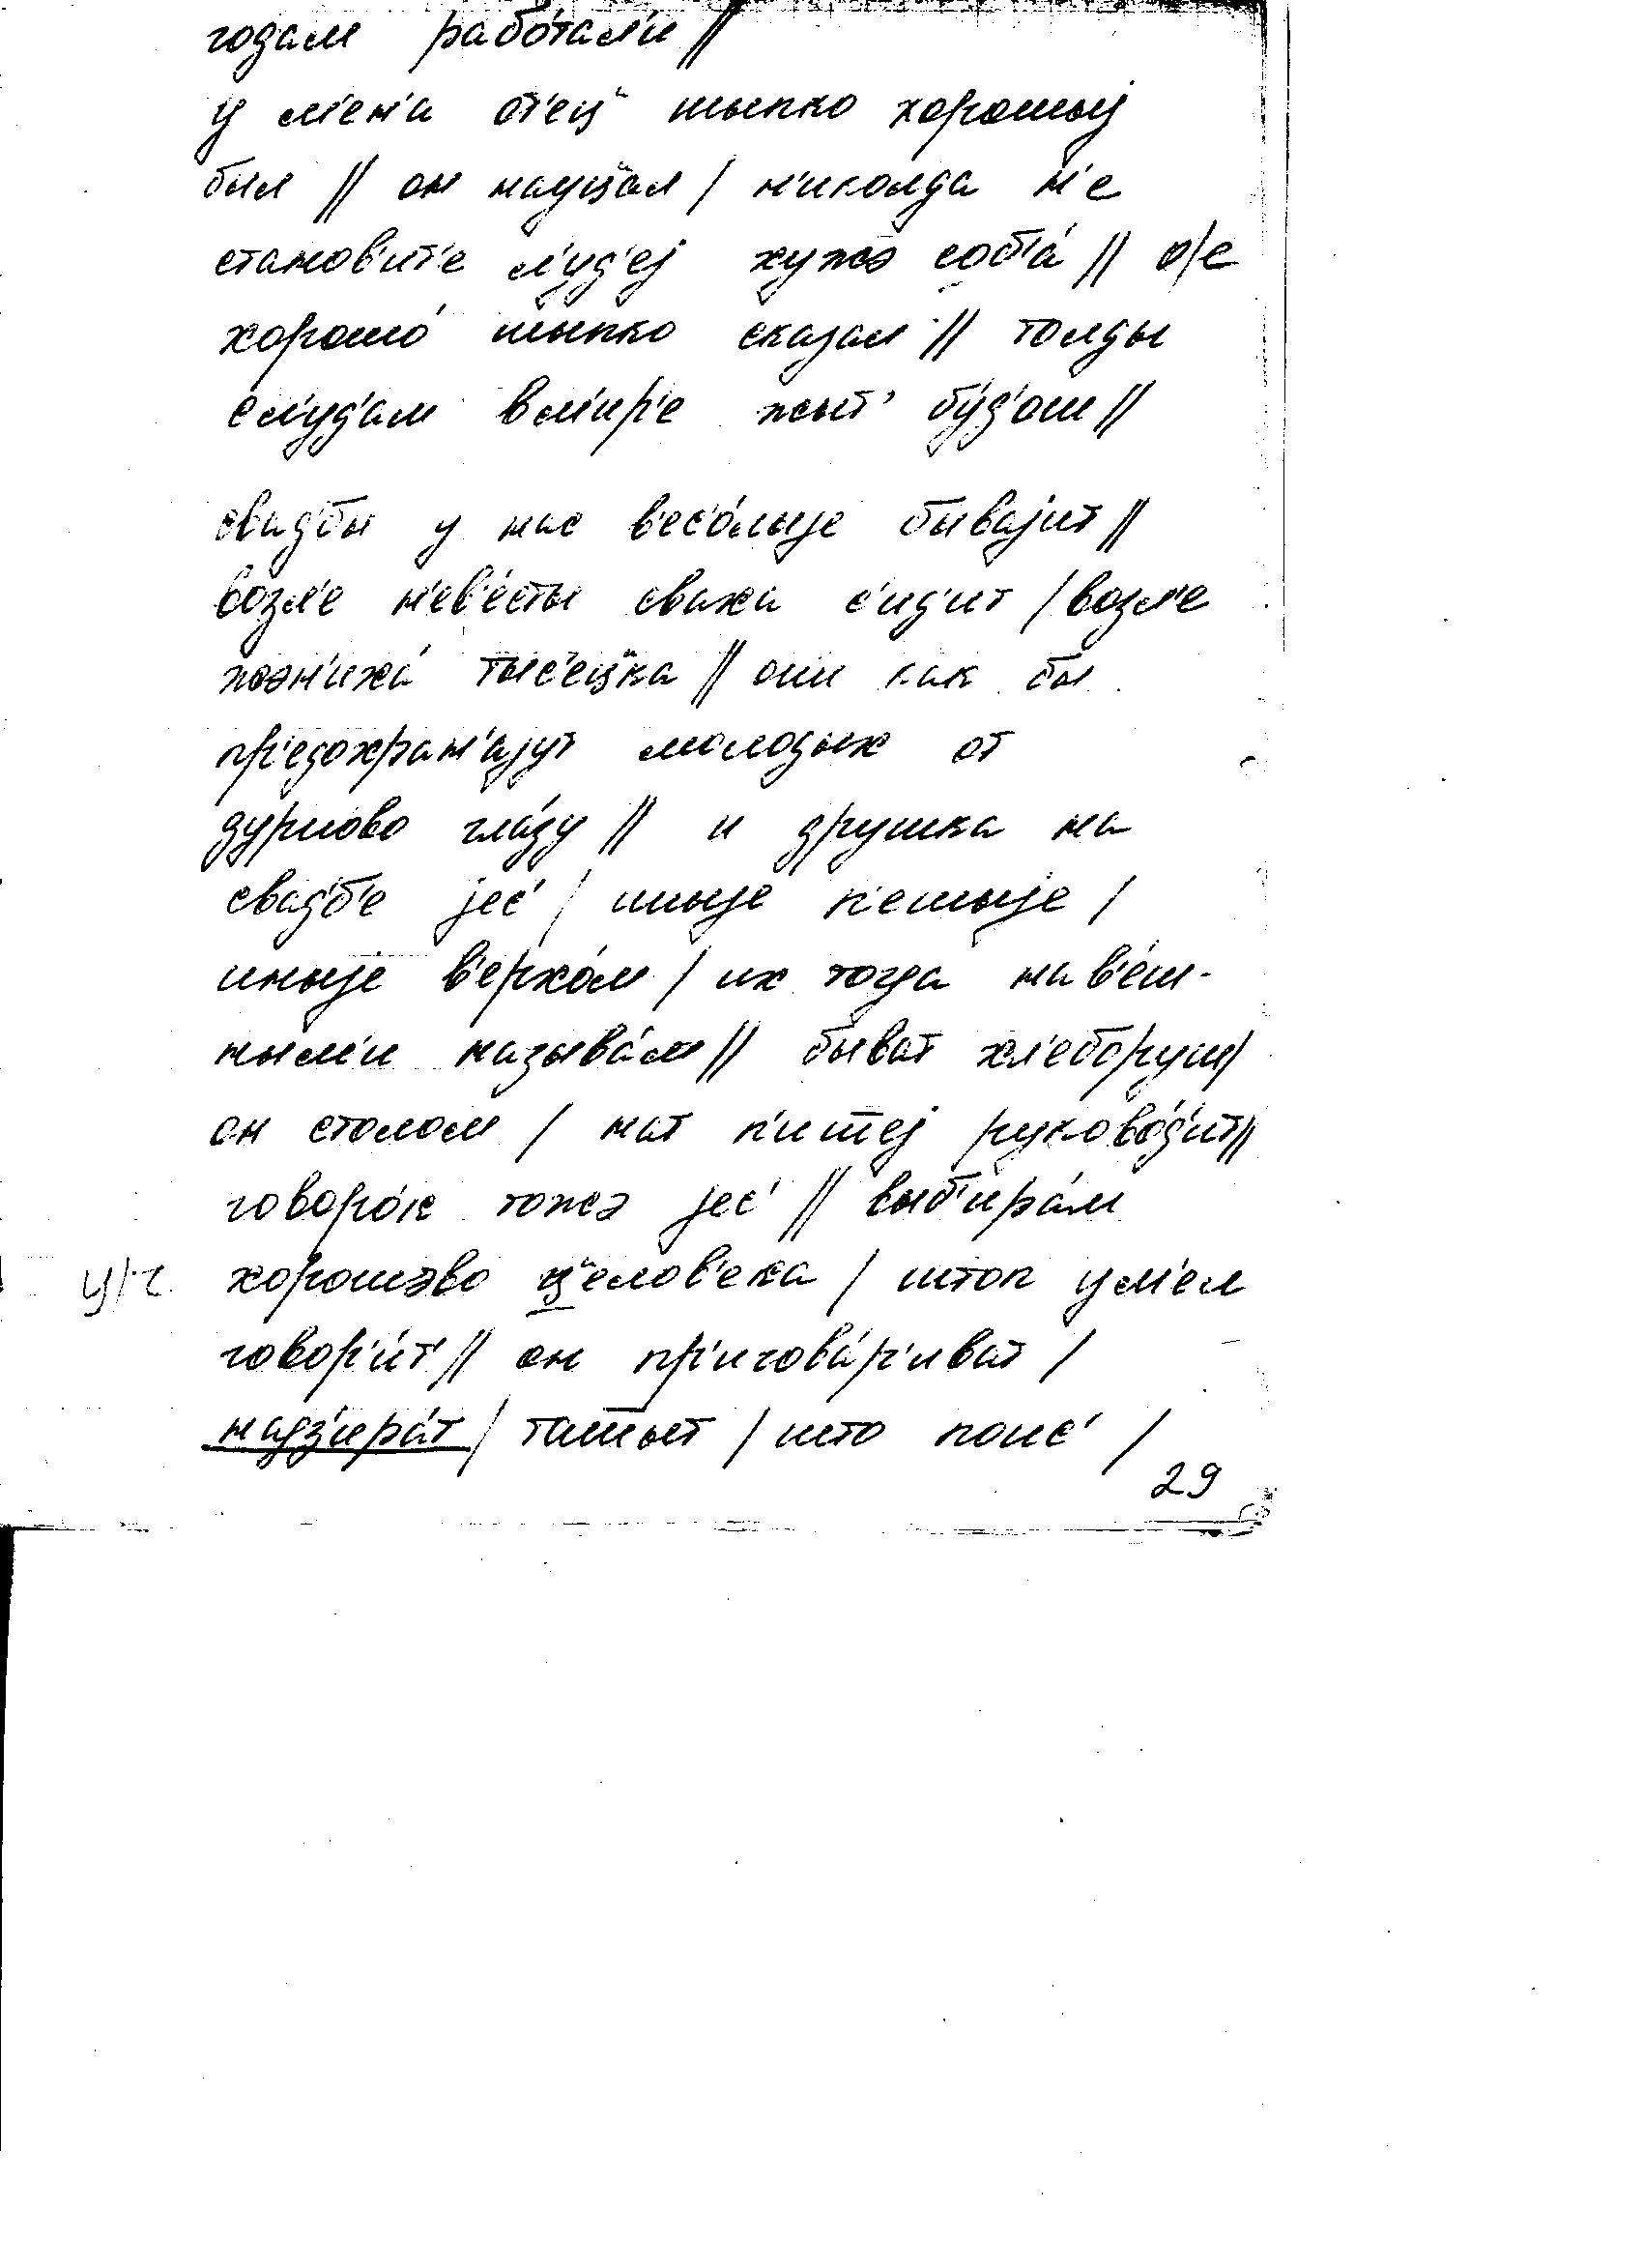 годам рабо́тал'и //
у м'ен'а от'ец" шыпко хорошыј
был // он науц"ал / н'иколда н'е
станов'ит'е л'уд'еј хужэ соб'а́ // о/е
хорошо́ шыпко сказал // толды
с л'уд'ам в м'ир'е жыт' бу́д'ош //
свад'бы у нас в'ес'о́лыје бывајит //
возл'е н'ев'е́сты сваха с'ид'ит / возл'е
жэн'иха́ тыс'ец"ка // они как бы
пр'едохран'ајут молодых от
дурново гла́зу // и друшка на
свад'б'е јес' / иныје п'ешыје /
иныје в'ерхо́м / их тогда на в'е́ш-
ным'и называ́м // быват хл'еборуш /
он столом / нат п'ишшеј руково́д'ит //
говоро́к тожэ јес' // выб'ира́м
ц/ч хорошэво ц"елов'ека / штоп ум'ел
говор'и́т' // он пр'игова́р'иват /
надз'ира́т / ташшыт / што поис' /
29